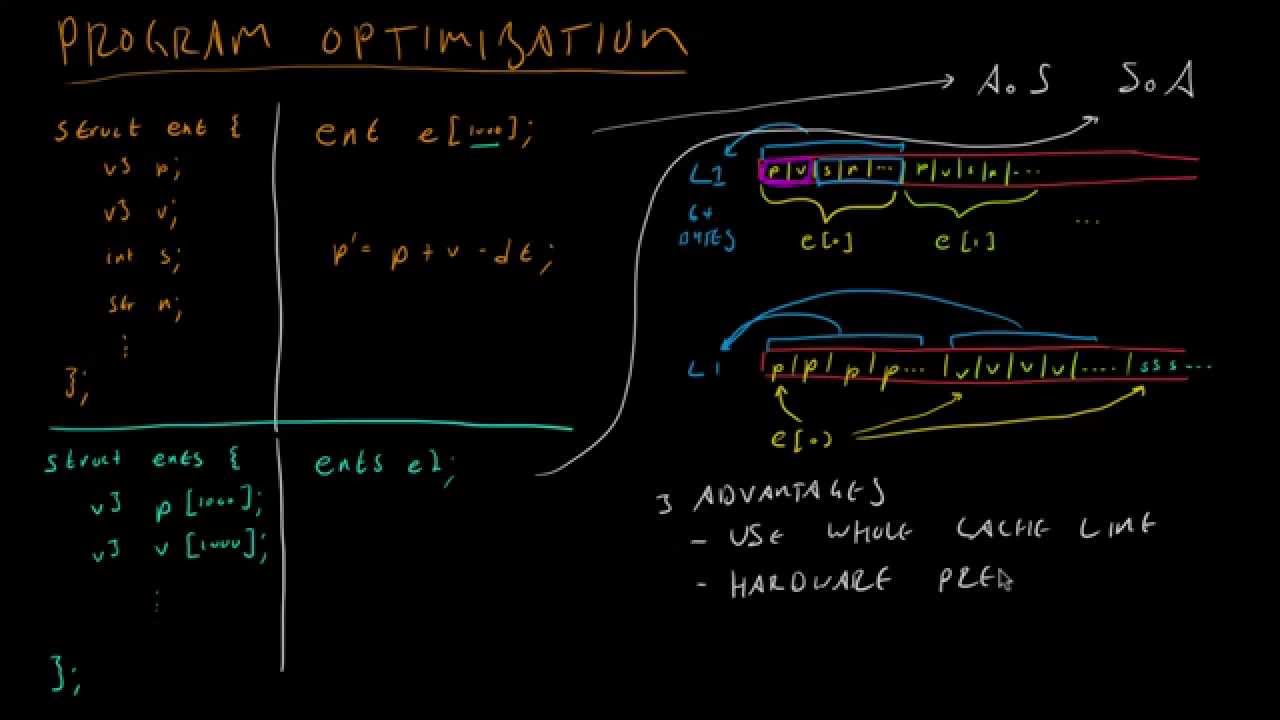 PROGRAM OPTIMIZATION
struct ent {
v3 p;
v3 v;
int s;
str n;
⋮
};
ent e[1000];
p' = p + v · dt;
struct ents {
v3 p[1000];
v3 v[1000];
⋮
};
ents e2;
AoS SoA
L1
p|v|s|n|... p|v|s|n|...
64
BYTES
e[0] e[1] ...
L1
p|p|p|p... |v|v|v|v|....|sss...
e[0]
3 ADVANTAGES
- USE WHOLE CACHE LINE
- HARDWARE PRE